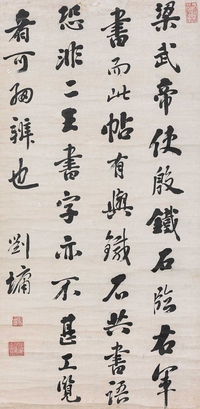 梁武帝使殷鐵石臨右軍
書而此帖有與鐵石共書語
恐非二王書字亦不甚工覽
者可細辨也
劉墉